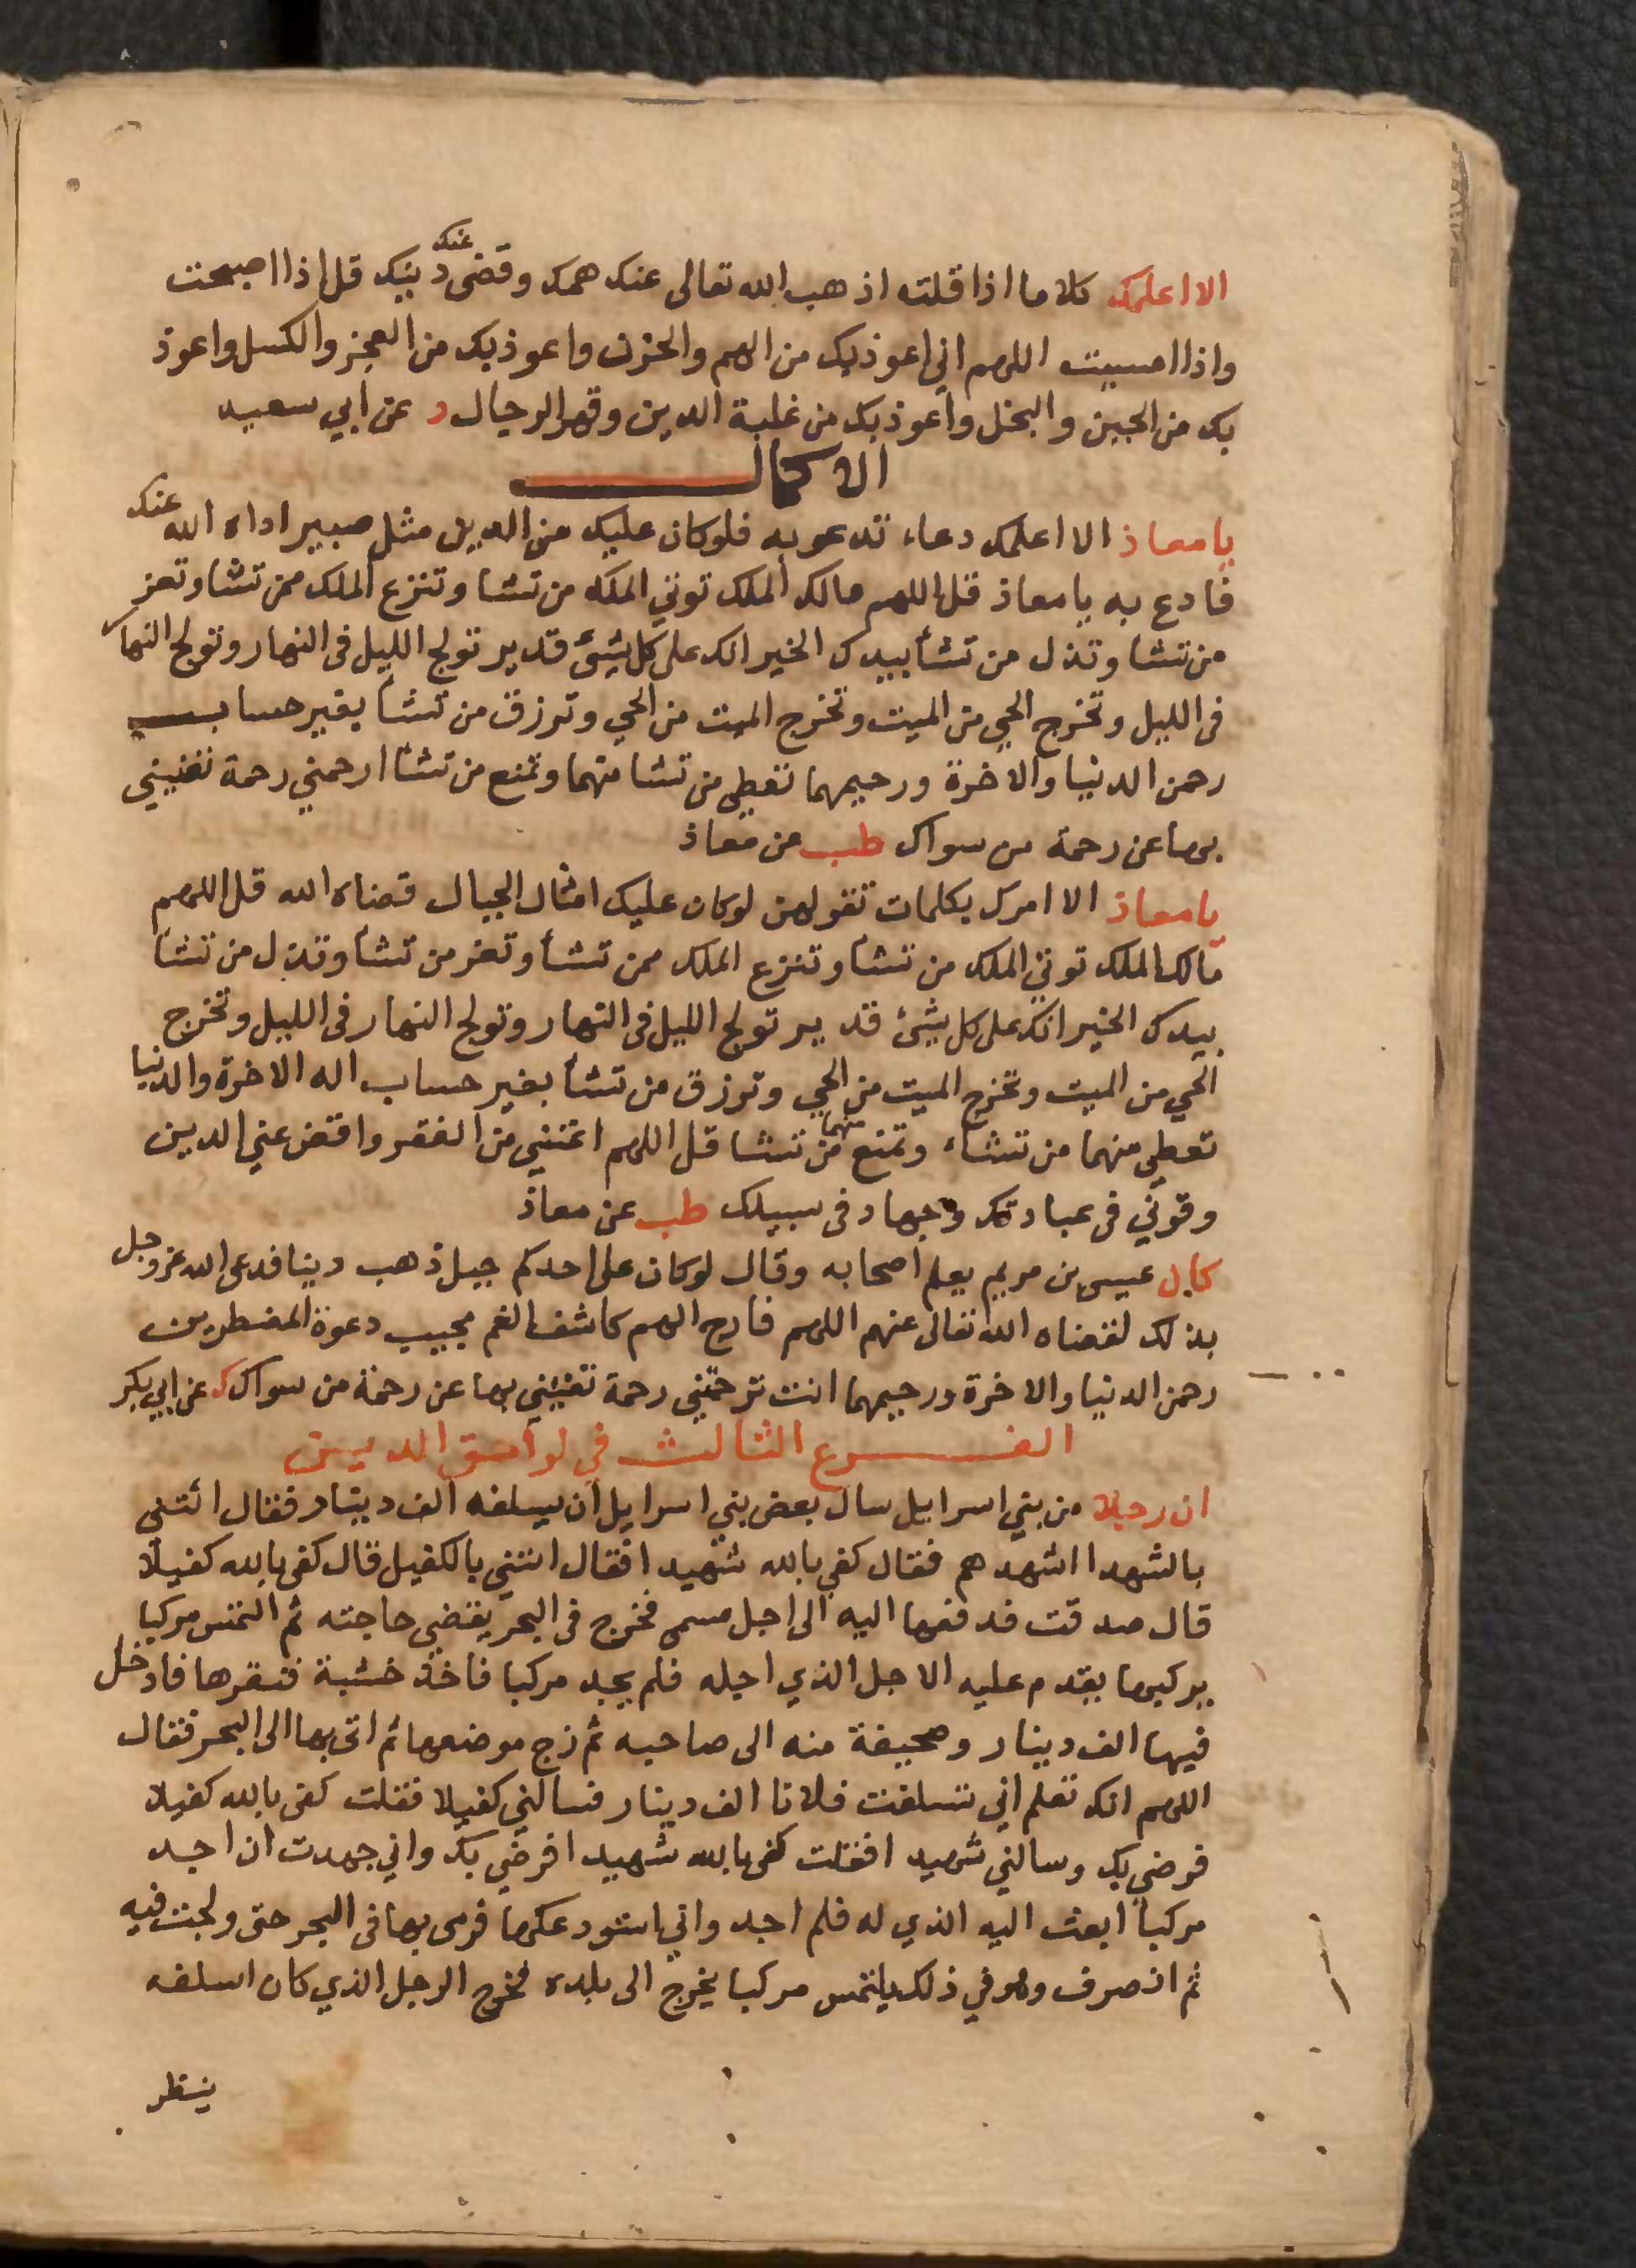 الا اعلمك كلاما اذا قلته اذهب الله تعالى عنك همك وقضى عنك دينك قل اذا اصبحت
واذا امسيت اللهم اني اعوذ بك من الهم والحزن واعوذ بك من العجز والكسل واعوذ
بك من الجبن والبخل واعوذ بك من غلبة الدين وقهر الرجال د عن ابي سعيد
الاكمال
يا معاذ الا اعلمك دعاء تدعو به فلو كان عليك من الدين مثل صبير اداه الله عنك
فادع به يا معاذ قل اللهم مالك الملك توتي الملك من تشا وتنزع الملك ممن تشا وتعز
من تشا وتذل من تشأ بيدك الخير انك على كل شئ قدير تولج الليل في النهار وتولج النهار
في الليل وتخرج الحي من الميت وتخرج الميت من الحي وترزق من تشأ بغير حساب
رحمن الدنيا والاخرة ورحيمهما تعطي من تشا منهما وتمنع من تشأ ارحمني رحمة تغنيني
بها عن رحمة من سواك طب عن معاذ
يا معاذ الا امرك بكلمات تقولهن لو كان عليك امثال الجبال قضاه الله قل اللهم
مالك الملك توتي الملك من تشأ وتنزع الملك ممن تشأ وتعز من تشأ وتذل من تشأ
بيدك الخير انك على كل شئ قدير تولج الليل في النهار وتولج النهار في الليل وتخرج
الحي من الميت وتخرج الميت من الحي وترزق من تشأ بغير حساب اله الاخرة والدنيا
تعطي منهما من تشاء وتمنع منهما من تشا قل اللهم اغنني من الفقر واقض عني الدين
وقوني في عبادتك وجهاد في سبيلك طب عن معاذ
كان عيسى بن مريم يعلم اصحابه وقال لو كان على احدكم جبل ذهب دينا فدعى الله عز وجل
بذلك لقضاه الله تعالى عنهم اللهم فارج الهم كاشف الغم مجيب دعوة المضطرين
رحمن الدنيا والاخرة ورحيمهما انت ترحمني رحمة تغنيني بها عن رحمة من سواك ك عن ابي بكر
الفرع الثالث في لواحق الدين
ان رجلا من بني اسرايل سال بعض بني اسرايل ان يسلفه الف دينار فقال ائتني
بالشهدا اشهدهم فقال كفى بالله شهيدا فقال ائتني بالكفيل قال كفى بالله كفيلا
قال صدقت فدفعها اليه الى اجل مسمى فخرج في البحر يقضي حاجته ثم التمس مركبا
يركبها يقدم عليه الاجل الذي اجله فلم يجد مركبا فاخذ خشبة فنقرها فادخل
فيها الف دينار وصحيفة منه الى صاحبه ثم زج موضعها ثم اتى بها الى البحر فقال
اللهم انك تعلم اني تسلفت فلانا الف دينار فسالني كفيلا فقلت كفى بالله كفيلا
فرضي بك وسالني شهيدا فقلت كفى بالله شهيدا فرضي بك واني جهدت ان اجد
مركبا ابعث اليه الذي له فلم اجد واني استودعكها فرمى بها في البحر حتى ولجت فيه
ثم انصرف وهو في ذلك يلتمس مركبا يخرج الى بلده فخرج الرجل الذي كان اسلفه
ينظر